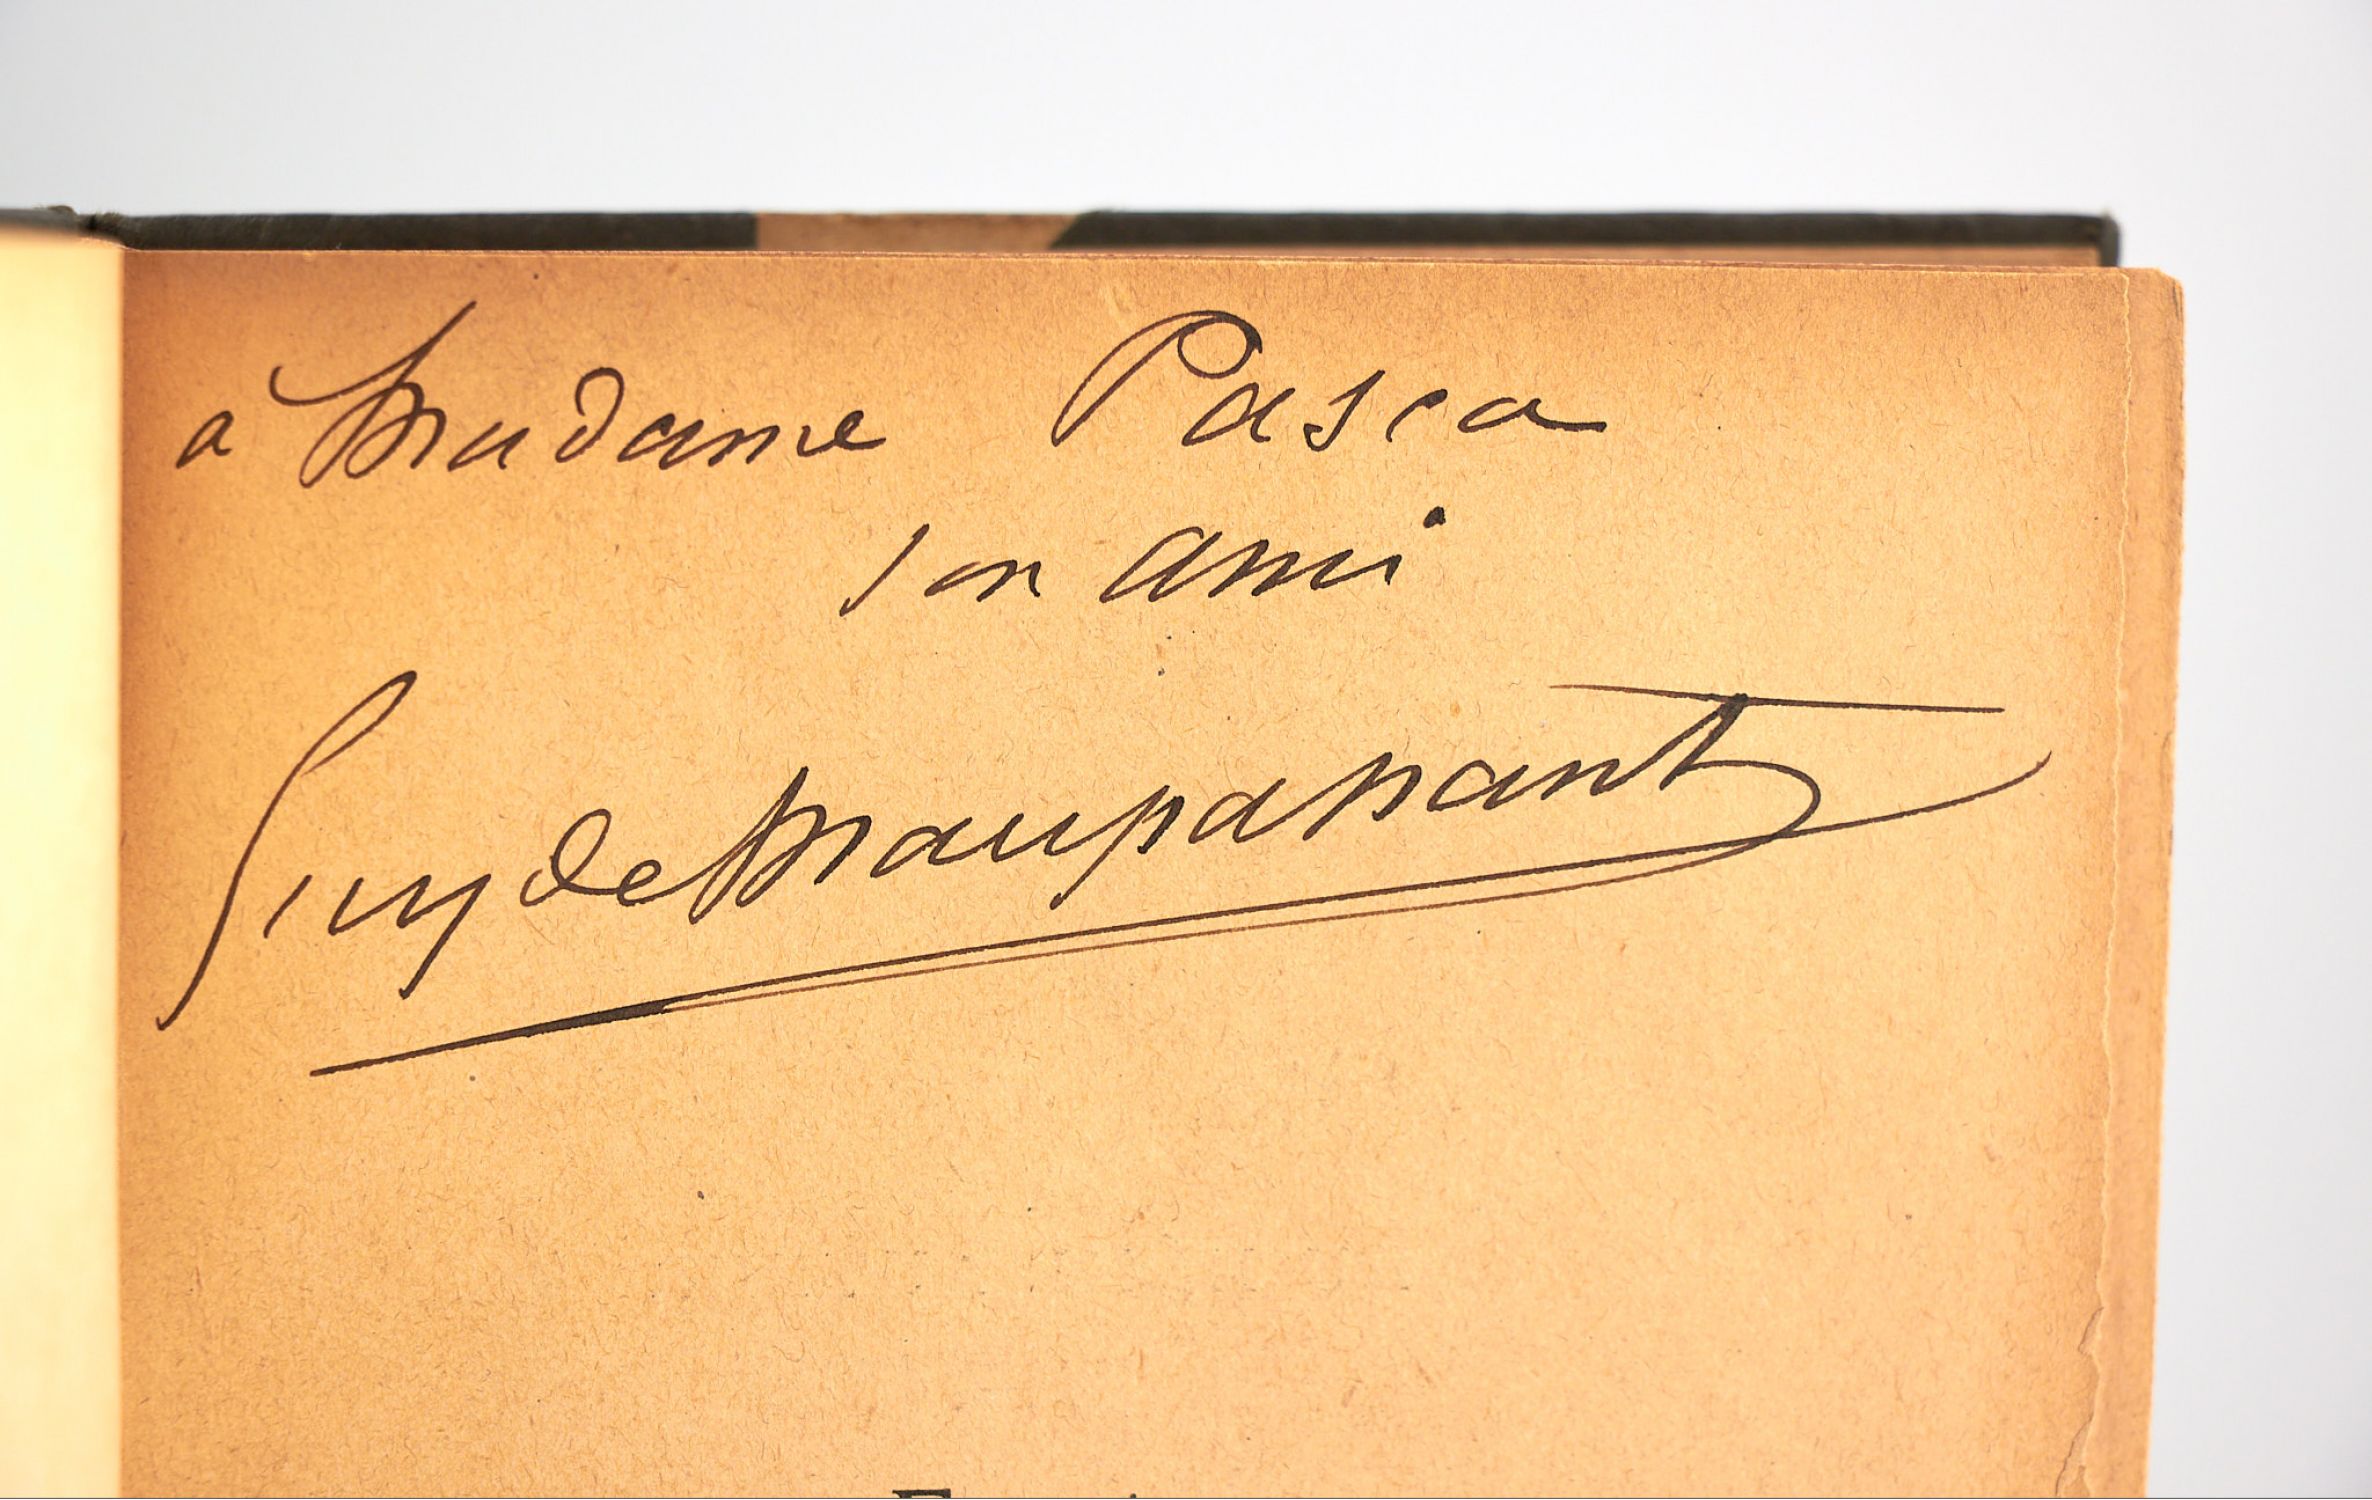 a Madame Pasca
son ami
Guy de Maupassant